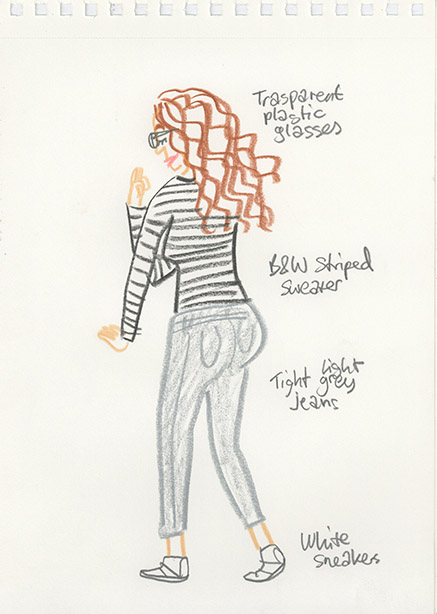 Trasparent
plastic
glasses
B&W striped
sweater
Tight light
grey
jeans
White
sneakers